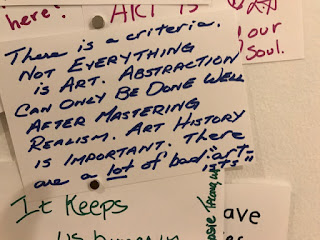 here!
ART IS
our
Soul.
There is a criteria.
NOT EVERYTHING
is ART. ABSTRACTION
CAN ONLY BE DONE WELL
AFTER MASTERING
REALISM. ART HISTORY
IS IMPORTANT. There
are a lot of bad "art-
ists"
It Keeps
us
ave